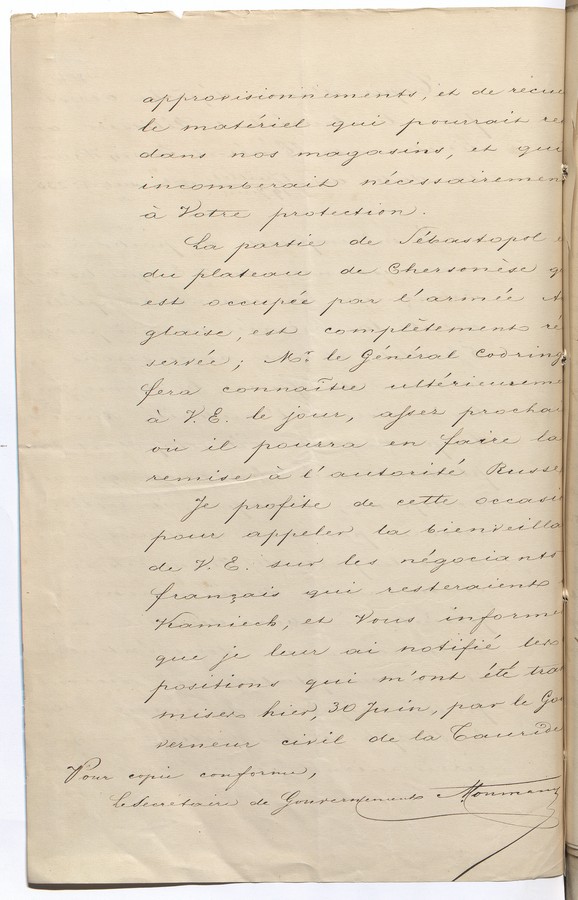 approvisionnements, et de recue
le matériel qui pourrait re
dans nos magasins, et que
incomberait nécessairemen
à Votre protection.
La partie de Sébastopol e
du plateau de Chersonèse q
est occupée par l'armée A
glaise, est complètement ré
servée; Mr. le Général Codring
fera connaître ultérieureme
à V. E. le jour, assez prochai
où il pourra en faire la
remise à l'autorité Russe
Je profite de cette occasi
pour appeler la bienveilla
de V. E. sur les négociants
français qui resteraient
Kamiech, et Vous informe
que je leur ai notifié les
positions qui m'ont été tra
mises hier, 30 Juin, par le Go
verneur civil de la Tauride
Pour copie conforme,
Le Secrétaire de Gouvernement